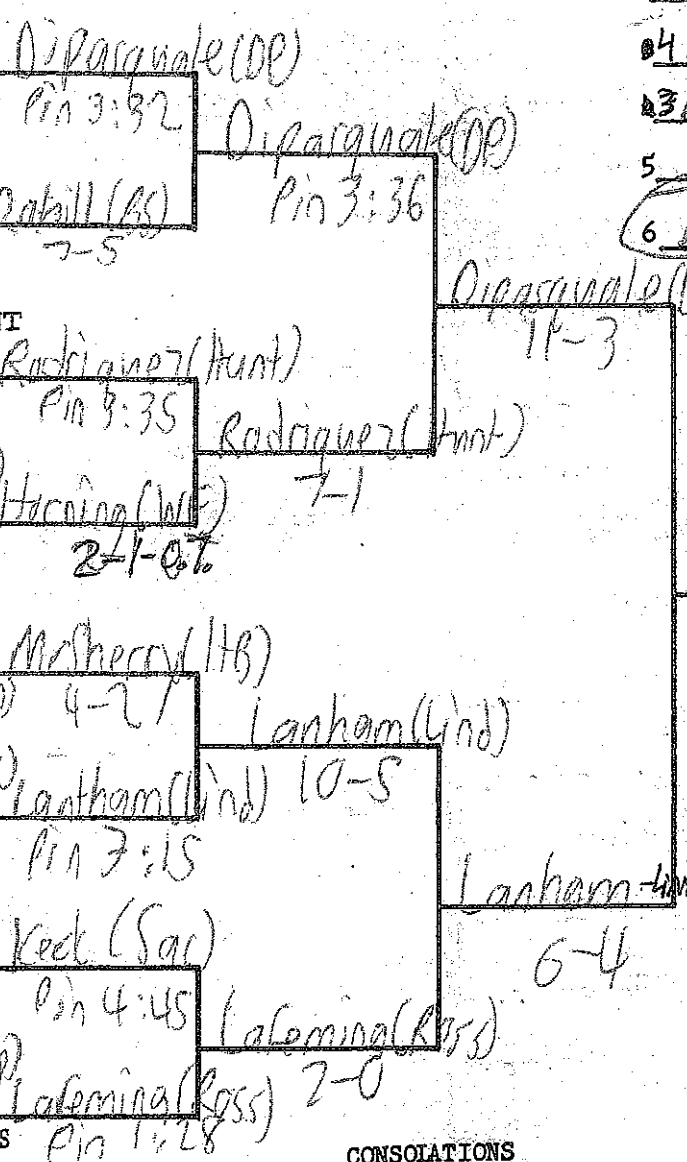 DiPasquale(DP)
Pin 3:32
DiPasquale(DP)
Pin 3:36
(BS)
7-5
DiPasquale(
11-3
NT
Rodriquez(Hunt)
Pin 3:35
Rodriquez(Hunt)
7-1
Horning(WF)
2-1-O.T.
McSherry(HB)
4-2
Lanham(Lind)
10-5
Lantham(Lind)
Pin 7:15
Lanham-Lin
6-4
Keck (Sac)
Pin 4:45
Lafeming(Ross)
2-0
Lafeming(Ross)
Pin 1:28
S
CONSOLATIONS
4
3
5
6